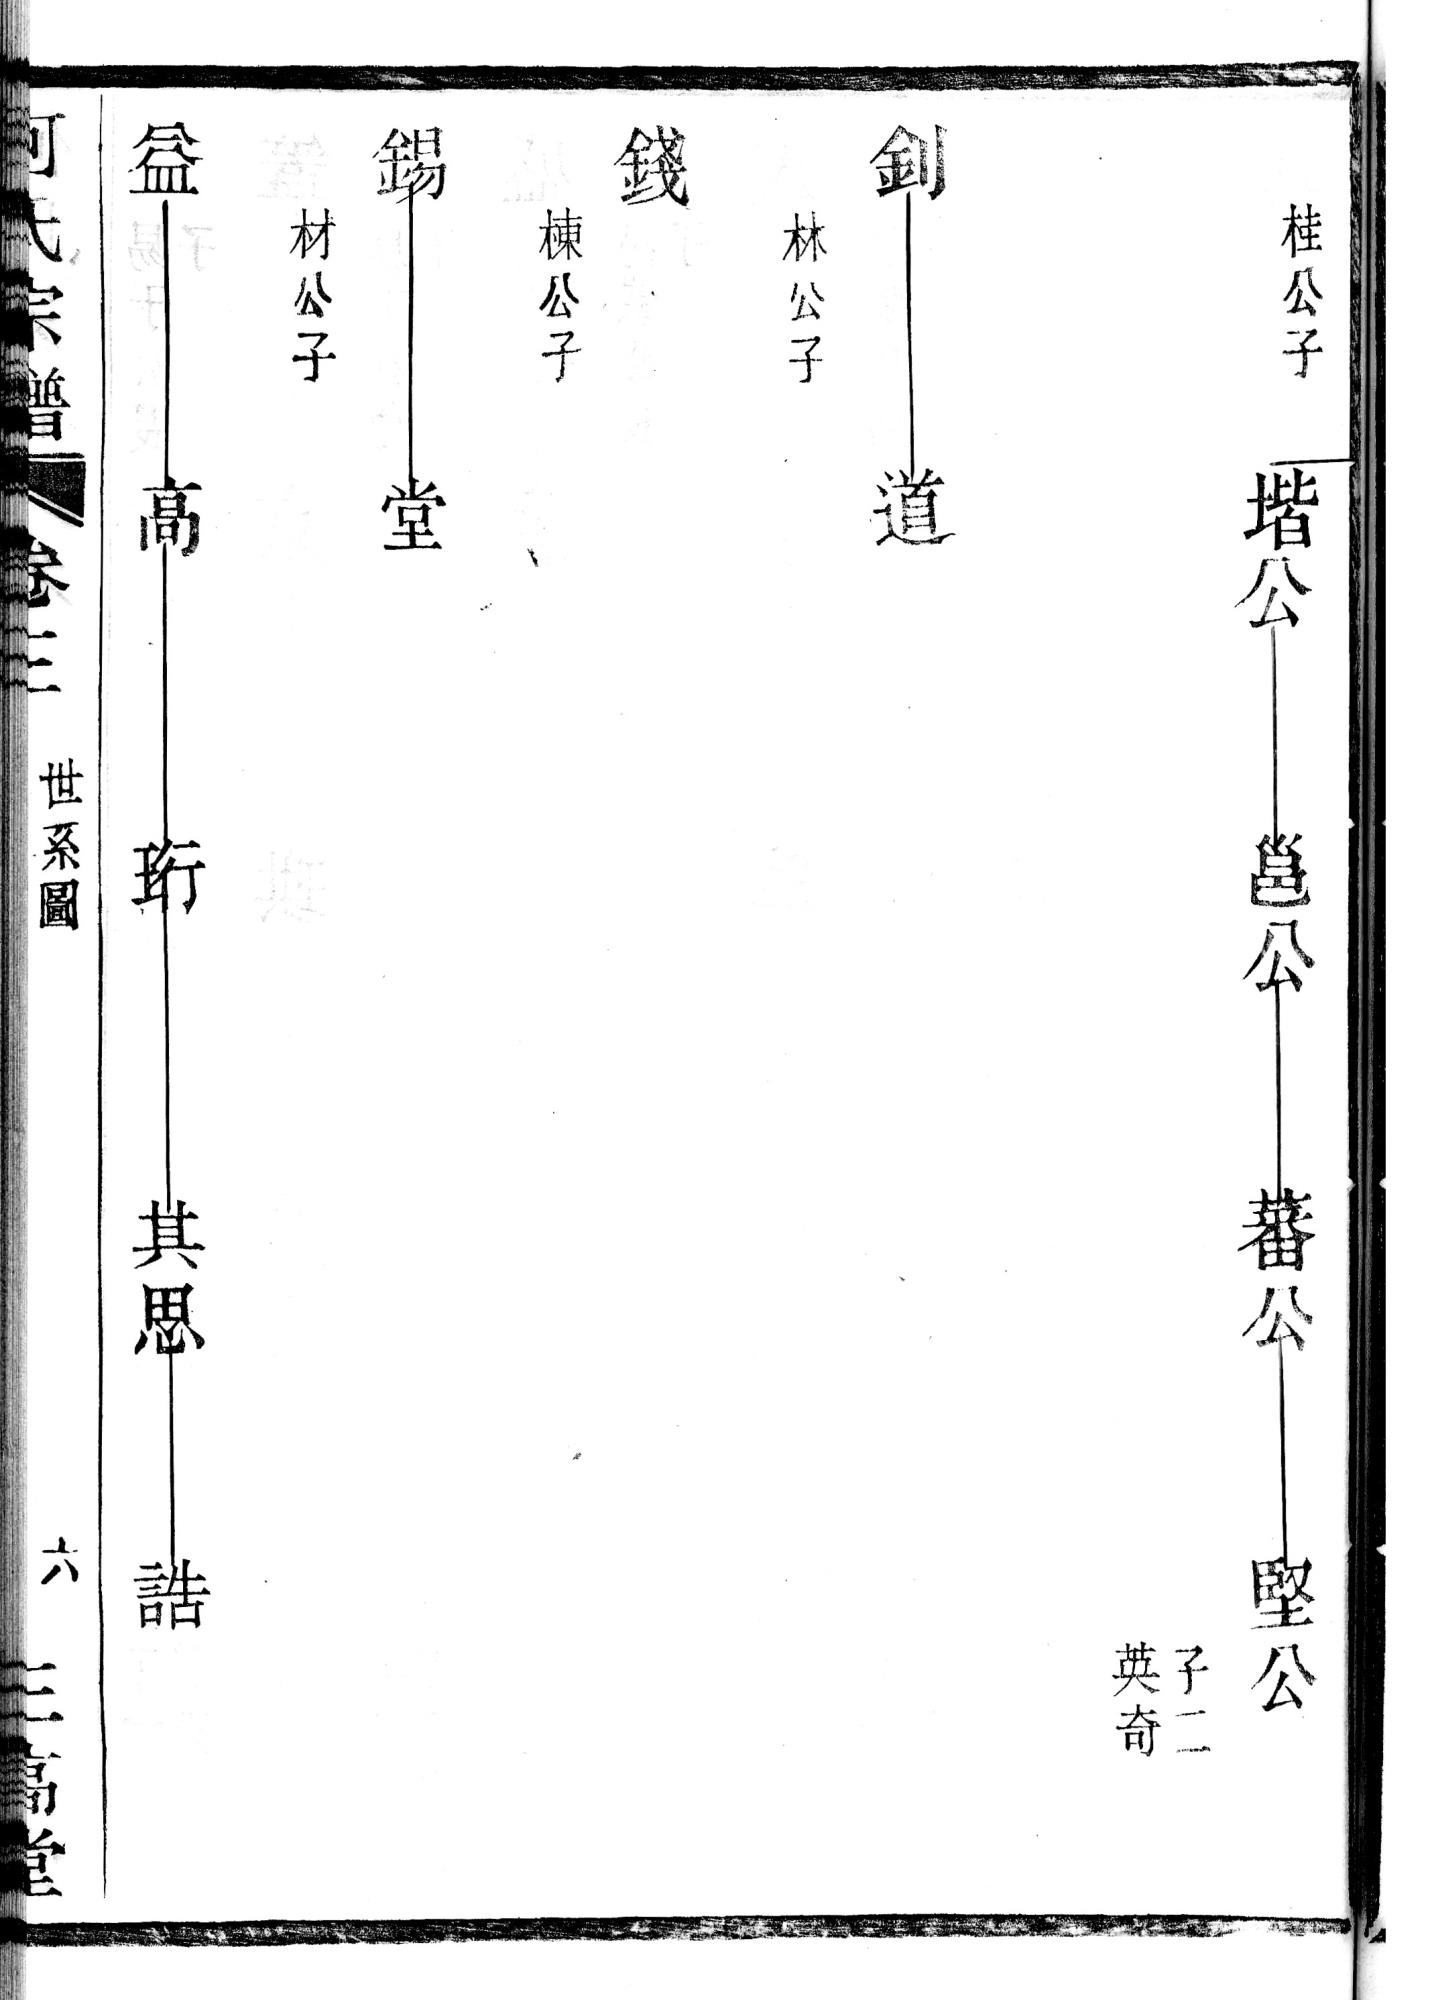 桂公子
堦公
邕公
蕃公
堅公
子二
英奇
釗
道
林公子
錢
棟公子
錫
堂
材公子
益
高
珩
其思
誥
何氏宗譜
卷三
世系圖
六
三高堂